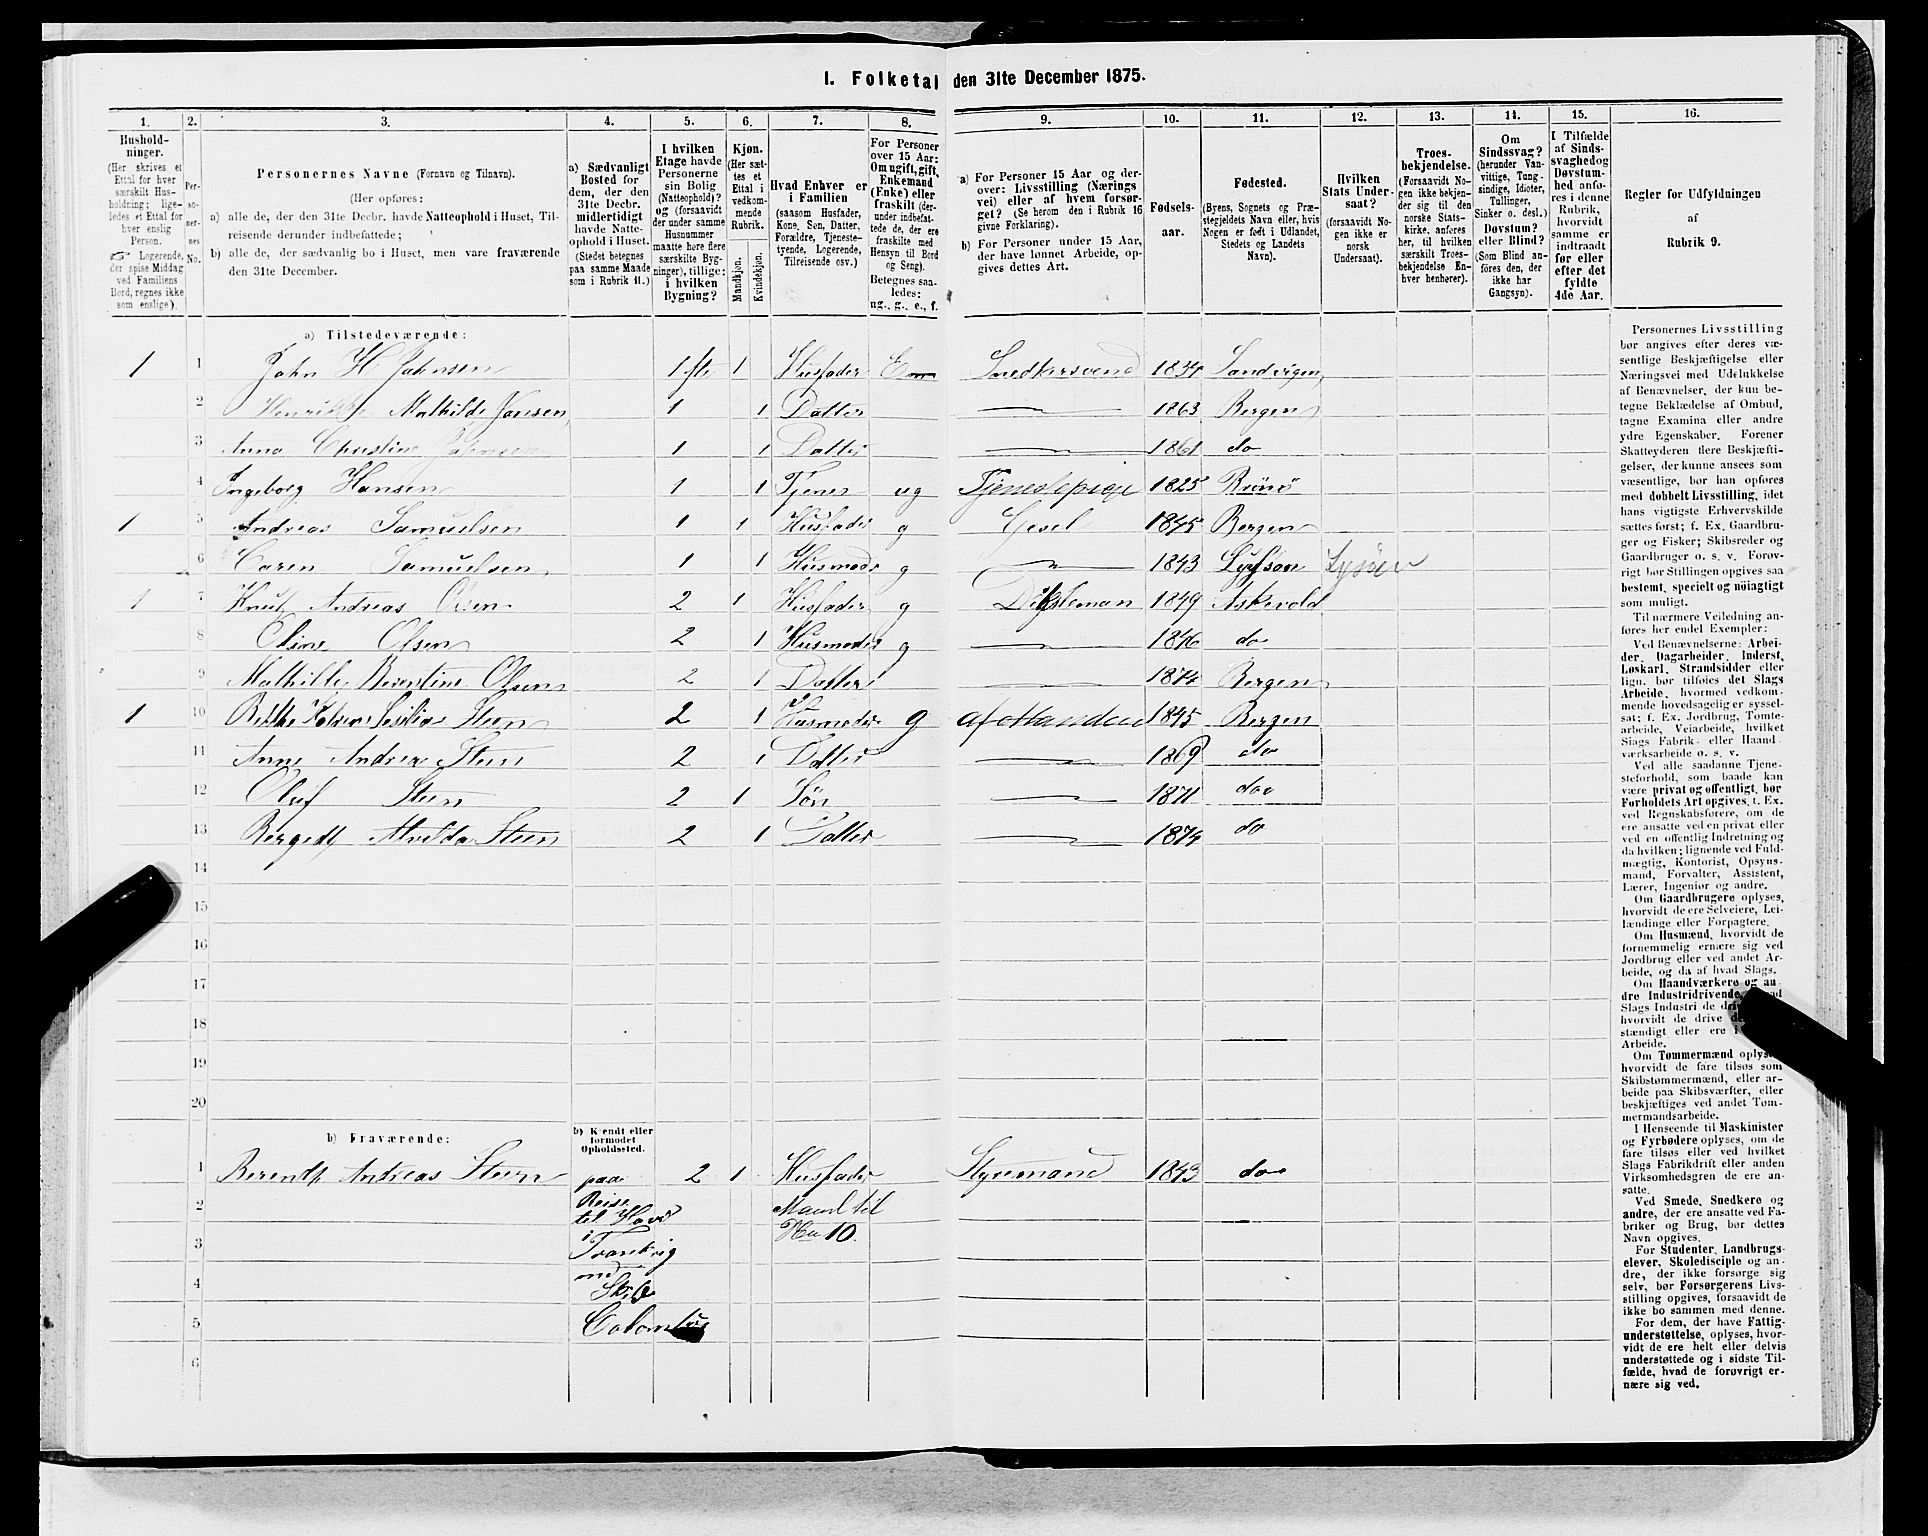 I. Folketal den 31te December 1875.
1. 2. 3. 4. 5. 6. 7. 8. 9. 10. 11. 12. 13. 14. 15. 16.
Hushold-
ninger.
(Her skrives et
Ettal for hver
særskilt Hus-
holdning; lige-
ledes et Ettal for
hver enslig
Person.
Logerende,
der spise Middag
ved Familiens
Bord, regnes ikke
som enslige).
Per-
so-
ner-
nes
No.
Personernes Navne (Fornavn og Tilnavn).
(Her opføres:
a) alle de, der den 31te Decbr. havde Natteophold i Huset, Til-
reisende derunder indbefattede;
b) alle de, der sædvanlig bo i Huset, men vare fraværende
den 31te December.
a) Sædvanligt
Bosted for
dem, der den
31te Decbr.
midlertidigt
havde Natte-
ophold i Huset.
(Stedet betegnes
paa samme Maade
som i Rubrik 11.)
I hvilken
Etage havde
Personerne
sin Bolig
(Natteophold)?
og (forsaavidt
der under samme
Husnummer
maatte høre flere
særskilte Byg-
ninger), tillige:
i hvilken
Bygning?
Kjøn.
(Her sæt-
tes et
Ettal i
vedkom-
mende
Rubrik.
Mandkjøn.
Kvindekjøn.
Hvad Enhver er
i Familien
(saasom Husfader,
Kone, Søn, Datter,
Forældre, Tjeneste-
tyende, Logerende,
Tilreisende osv.)
For Personer
over 15 Aar:
Om ugift, gift,
Enkemand
(Enke) eller
fraskilt (der-
under indbefat-
tede de, der ere
fraskilte med
Hensyn til Bord
og Seng).
Betegnes saa-
ledes:
ug., g., e., f.
a) For Personer 15 Aar og der-
over: Livsstilling (Nærings
vei) eller af hvem forsør-
get? (Se herom den i Rubrik 16
givne Forklaring).
b) For Personer under 15 Aar,
der have lønnet Arbeide, op-
gives dettes Art.
Fødsels-
aar.
Fødested.
(Byens, Sognets og Præ-
stegjeldets Navn eller, hvis
Nogen er født i Udlandet,
Stedets og Landets
Navn).
Hvilken
Stats Under-
saat?
(forsaavidt No-
gen ikke er
norsk
Undersaat).
Troes-
bekjendelse.
(Forsaavidt No-
gen ikke bekjen-
der sig til den
norske Stats-
kirke, anføres
her, til hvilken
særskilt Troes-
bekjendelse En-
hver henhører).
Om
Sindssvag?
(herunder Van-
vittige, Tung-
sindige, Idioter,
Tullinger,
Sinker o. desl.)
Døvstum?
eller Blind?
(Som Blind an-
føres den, der
ikke har
Gangsyn).
I Tilfælde
af Sinds-
svaghed og
Døvstum-
hed anfø-
res i denne
Rubrik,
hvorvidt
samme er
indtraadt
før eller
efter det
fyldte
4de Aar.
Regler for Udfyldningen
af
Rubrik 9.
a) Tilstedeværende:
1 1 John H Johnsen 1 ste 1 Husfader E Snedkersvend 1834 Sandvigen
2 Mathilde Jansen 1 1 Datter 1863 Bergen
3 Anna Christine 1 1 Datter 1861 do
4 Ingeborg Hansen 1 1 Tjener ug Tjenestepige 1825
1 5 Andreas Samuelsen 1 1 Husfader g Gesel 1845 Bergen
6 Caren Samuelsen 1 1 Husmoder g 1843
1 7 Knut Andreas Olsen 2 1 Husfader g 1849 Askevold
8 Oline Olsen 2 1 Husmoder g 1846 do
9 Mathilde Berentine Olsen 2 1 Datter 1874 Bergen
1 10 Steen 2 1 Husmoder g af Manden 1845 Bergen
11 Anne Andrea Steen 2 1 Datter 1869 do
12 Oluf Steen 2 1 Søn 1871 do
13 Steen 2 1 Datter 1874 do
14
15
16
17
18
19
20
b) Fraværende:
b) Kjendt eller
formodet
Opholdssted.
1 Berendt Andreas Steen paa 2 1 Husfader Styremand 1843 do
2 Reise Mand til
til No 10.
3 i
4
5
6
Personernes Livsstilling
bør angives efter deres væ-
sentlige Beskjæftigelse eller
Næringsvei med Udelukkelse
af Benævnelser, der kun be-
tegne Beklædelse af Ombud,
tagne Examina eller andre
ydre Egenskaber. Forener
Skatteyderen flere Beskjæfti-
gelser, der kunne ansees som
væsentlige, bør han opføres
med dobbelt Livsstilling, idet
hans vigtigste Erhvervskilde
sættes først; f. Ex. Gaardbru-
ger og Fisker; Skibsreder og
Gaardbruger o. s. v. Forøv-
rigt bør Stillingen opgives saa
bestemt, specielt og nøiagtigt
som muligt.
Til nærmere Veiledning an-
føres her endel Exempler:
Ved Benævnelserne: Arbei-
der, Dagarbeider, Inderst,
Løskarl, Strandsidder eller
lign. bør tilføies det Slags
Arbeide, hvormed vedkom-
mende hovedsagelig er syssel-
sat; f. Ex. Jordbrug, Tomte-
arbeide, Veiarbeide, hvilket
Slags Fabrik- eller Haand-
værksarbeide o. s. v.
Ved alle saadanne Tjene-
steforhold, som baade kan
være privat og offentligt, bør
Forholdets Art opgives, t. Ex.
ved Regnskabsførere, om de
ere ansatte ved en privat eller
ved en offentlig Indretning og
da hvilken; lignende ved Fuld-
mægtig, Kontorist, Opsyns-
mand, Forvalter, Assistent,
Lærer, Ingeniør og andre.
Om Gaardbrugere oplyses,
hvorvidt de ere Selveiere, Lei-
lændinge eller Forpagtere.
Om Husmænd, hvorvidt de
fornemmelig ernære sig ved
Jordbrug eller ved andet Ar-
beide, og da af hvad Slags.
Om Haandværkere og an-
dre Industridrivende,
Slags Industri de
hvorvidt de drive
stændigt eller ere i
Arbeide.
Om Tømmermænd
hvorvidt de fare tilsøs som
Skibstømmermænd, eller ar-
beide paa Skibsværfter, eller
beskjæftiges ved andet Tøm-
mermandsarbeide.
I Henseende til Maskinister
og Fyrbødere oplyses, om de
fare tilsøs eller ved hvilket
Slags Fabrikdrift eller anden
Virksomhedsgren de ere an-
satte.
Ved Smede, Snedkere og
andre, der ere ansatte ved Fa-
briker og Brug, bør dettes
Navn opgives.
For Studenter, Landbrugs-
elever, Skoledisciple og an-
dre, der ikke forsørge sig
selv, bør Forsørgerens Livs-
stilling opgives, forsaavidt de
ikke bo sammen med denne.
For dem, der have Fattig-
understøttelse, oplyses, hvor-
vidt de ere helt eller delvis
understøttede og i sidste Til-
fælde, hvad de forøvrigt er-
nære sig ved.